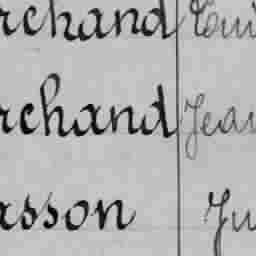 rchand
rchand Jean
asson Ju